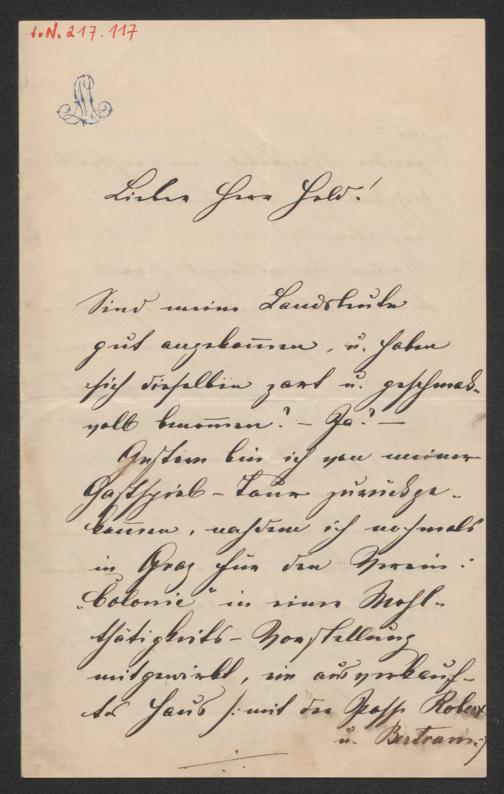 I.N. 217.117
Lieber Herr Held!
Sind meine Landsleute
gut angekom̅en, u. haben
sich dieselben zart u. geschmak-
voll benom̅en? – Ja? –
Gestern bin ich von meiner
Gastspiel-Tour zurückge-
kom̅en, nachdem ich nochmals
in Graz für den Verein:
„Colonie" in einer Wohl-
thätigkeits-Vorstellung
mitgewirkt, ein ausverkauf-
tes Haus /: mit der Posse Robert
u. Bertram :/